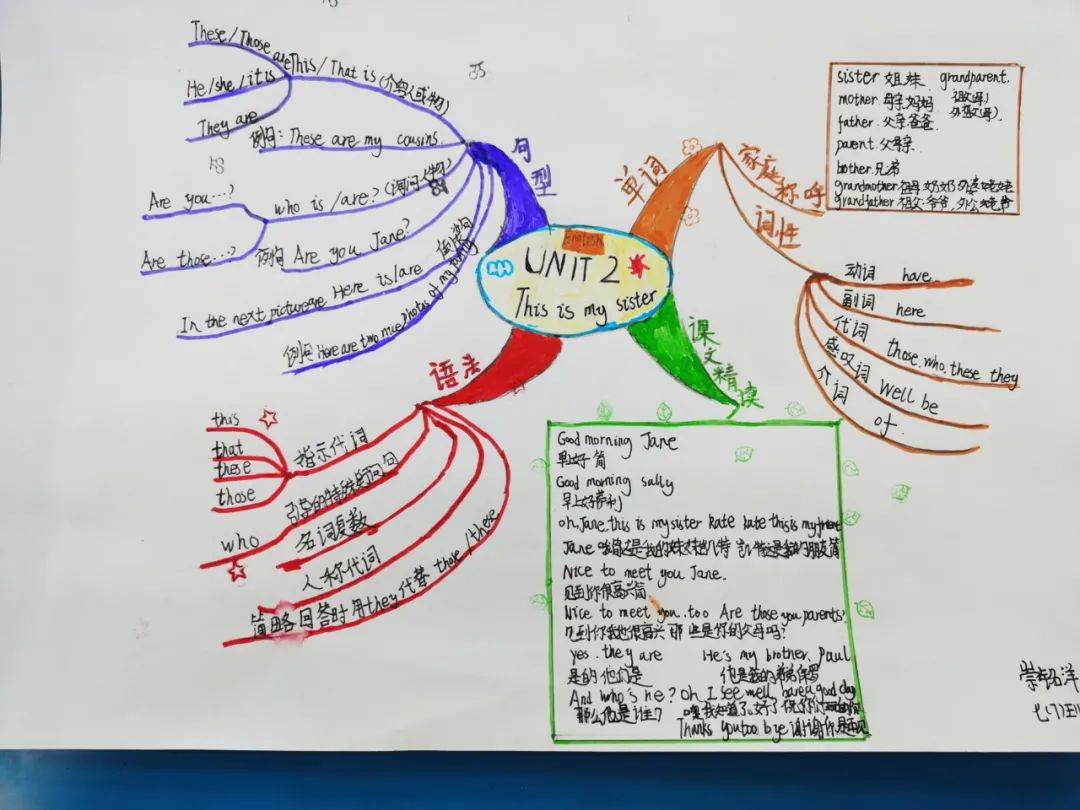 English
UNIT 2
This is my sister
句型
These / Those are
This / That is (介绍人或物)
He / she / it is
They are
例句: These are my cousins.
who is /are? (询问人物)
Are you...?
Are those...?
例句 Are you Jane?
倒装句
Here is/are
In the next picture are
例句 Here are two nice photos of my family
单词
家庭称呼
sister 姐妹. grandparent.
mother. 母亲妈妈 祖(父母)
father. 父亲.爸爸. 外祖(父母).
parent. 父母亲.
brother. 兄弟
grandmother 祖母 奶奶 外婆姥姥
grandfather 祖父 爷爷, 外公姥爷
词性
动词 have.
副词 here
代词 those. who. these they
感叹词 Well be
介词 of.
语法
指示代词
this
that
these
those
引导的特殊疑问句
who
名词复数
人称代词
简略回答时用they代替 those / these
课文精读
Good morning Jane
早上好 简
Good morning sally
早上好萨利
oh, Jane. this is my sister kate kate this is my friend
Jane
Nice to meet you Jane.
见到你很高兴简
Nice to meet you. too Are those you parents?
见到你我也很高兴 那些是你的父母吗?
yes. they are He's my brother. Paul
是的 他们是 他是我的 保罗
And who's he? oh I see well. have a good day
那么他是谁? 噢我知道了.好了
Thanks you too bye 谢谢你
洋
七(7)班